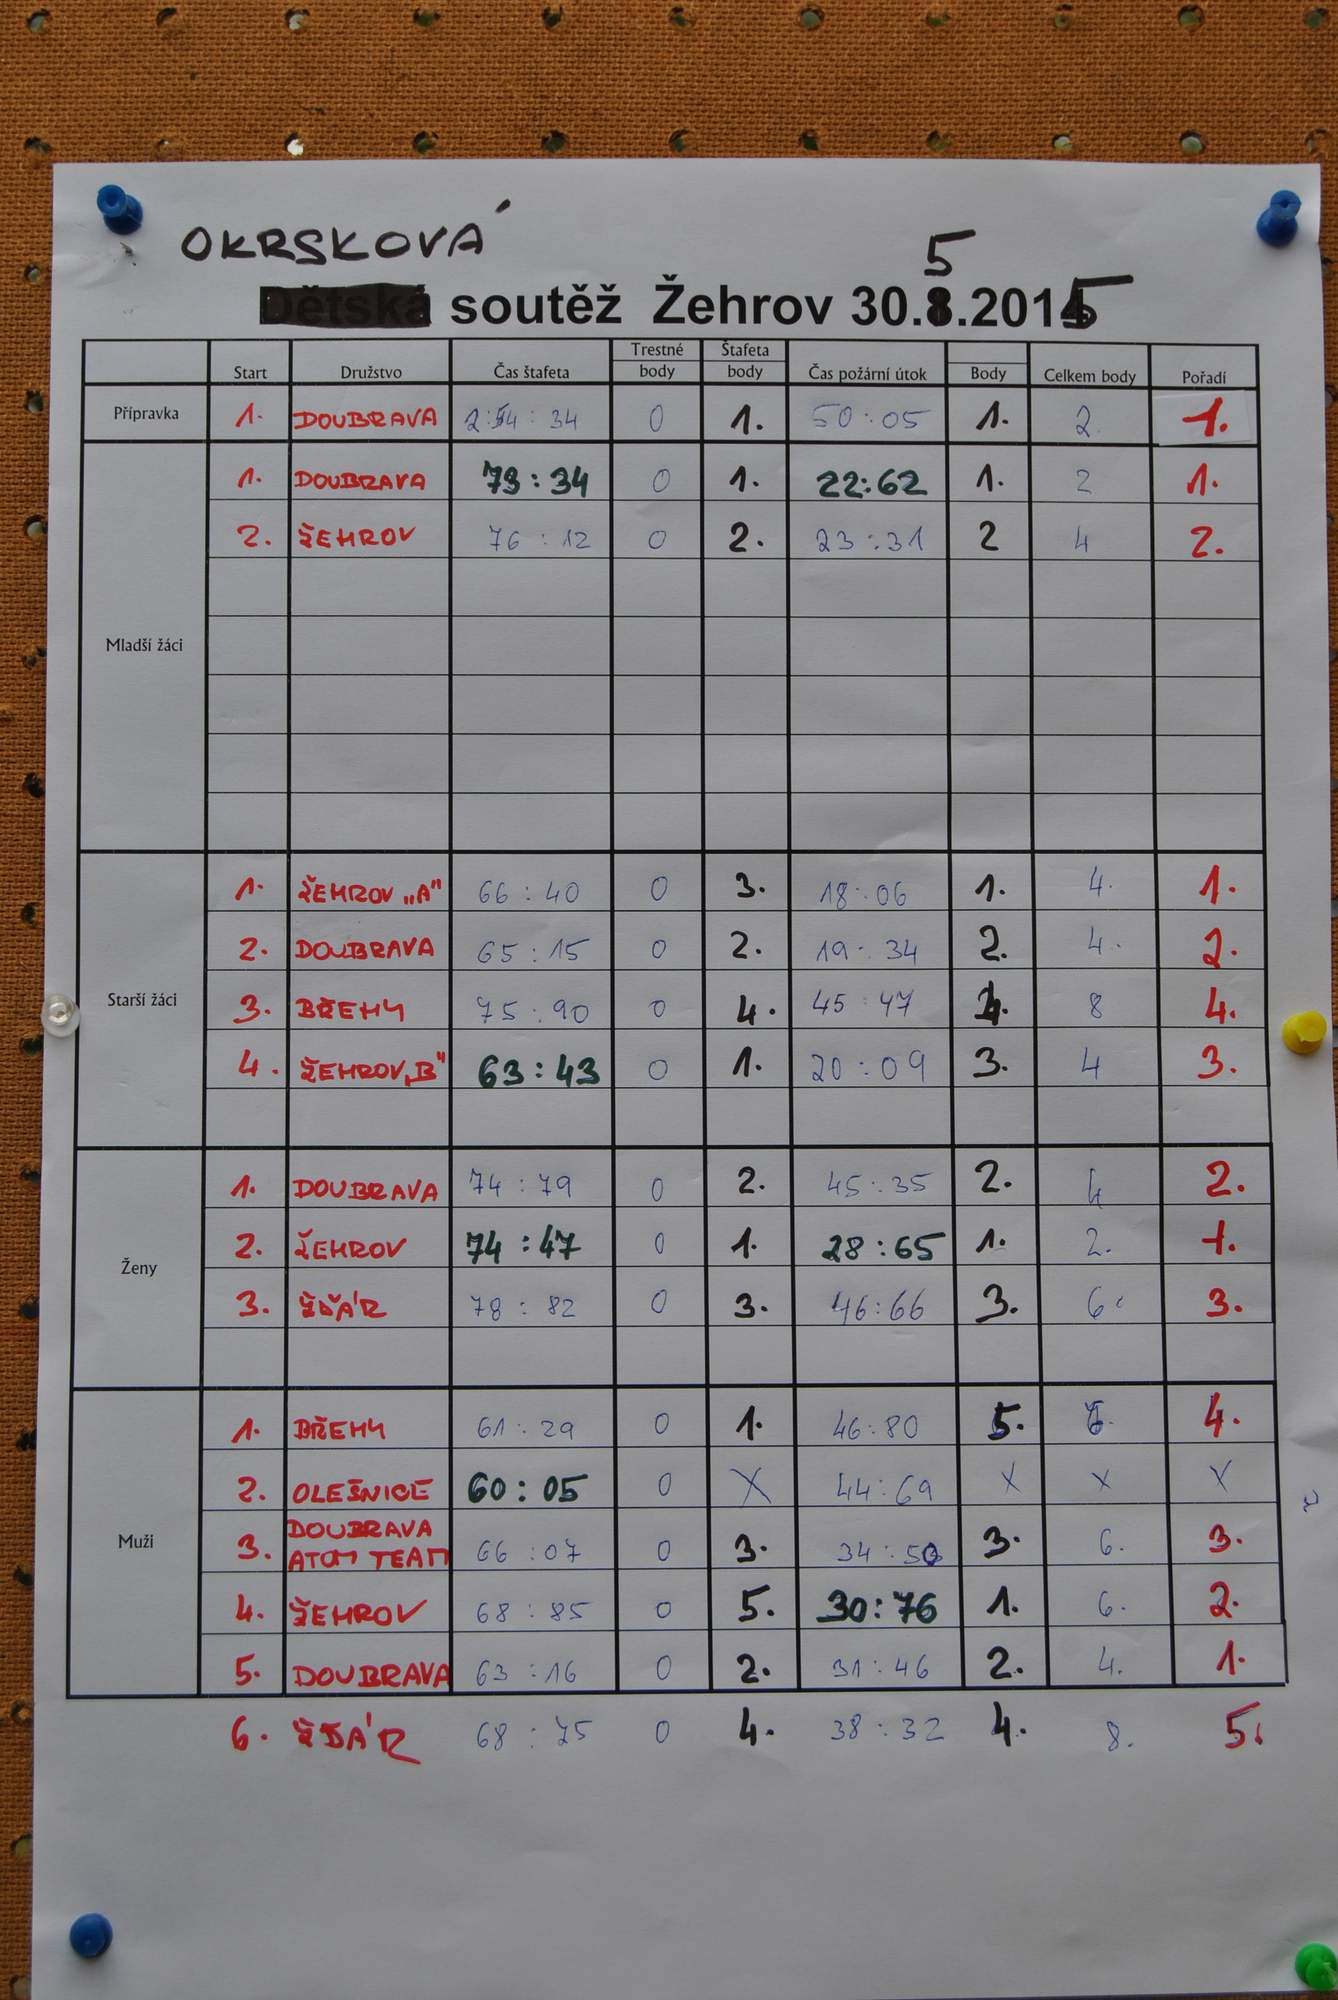 OKRSKOVÁ
5
soutěž Žehrov 30.8.2015
Start Družstvo Čas štafeta Trestné body Štafeta body Čas požární útok Body Celkem body Pořadí
Přípravka 1. DOUBRAVA 2:54:34 0 1. 50:05 1. 2. 1.
Mladší žáci
1. DOUBRAVA 73:34 0 1. 22:62 1. 2 1.
2. ŽEHROV 76:12 0 2. 23:31 2 4 2.
Starší žáci
1. ŽEHROV „A" 66:40 0 3. 18:06 1. 4. 1.
2. DOUBRAVA 65:15 0 2. 19:34 2. 4. 2.
3. BŘEHY 75:90 0 4. 45:47 4. 8 4.
4. ŽEHROV „B" 63:43 0 1. 20:09 3. 4 3.
Ženy
1. DOUBRAVA 74:79 0 2. 45:35 2. 4 2.
2. ŽEHROV 74:47 0 1. 28:65 1. 2. 1.
3. ŽĎÁR 78:82 0 3. 46:66 3. 6. 3.
Muži
1. BŘEHY 61:29 0 1. 46:80 5. 4.
2. OLEŠNICE 60:05 0 X 44:69 X X X
3. DOUBRAVA ATOM TEAM 66:07 0 3. 34:50 3. 6. 3.
4. ŽEHROV 68:85 0 5. 30:76 1. 6. 2.
5. DOUBRAVA 63:16 0 2. 31:46 2. 4. 1.
6. ŽĎÁR 68:75 0 4. 38:32 4. 8. 5.